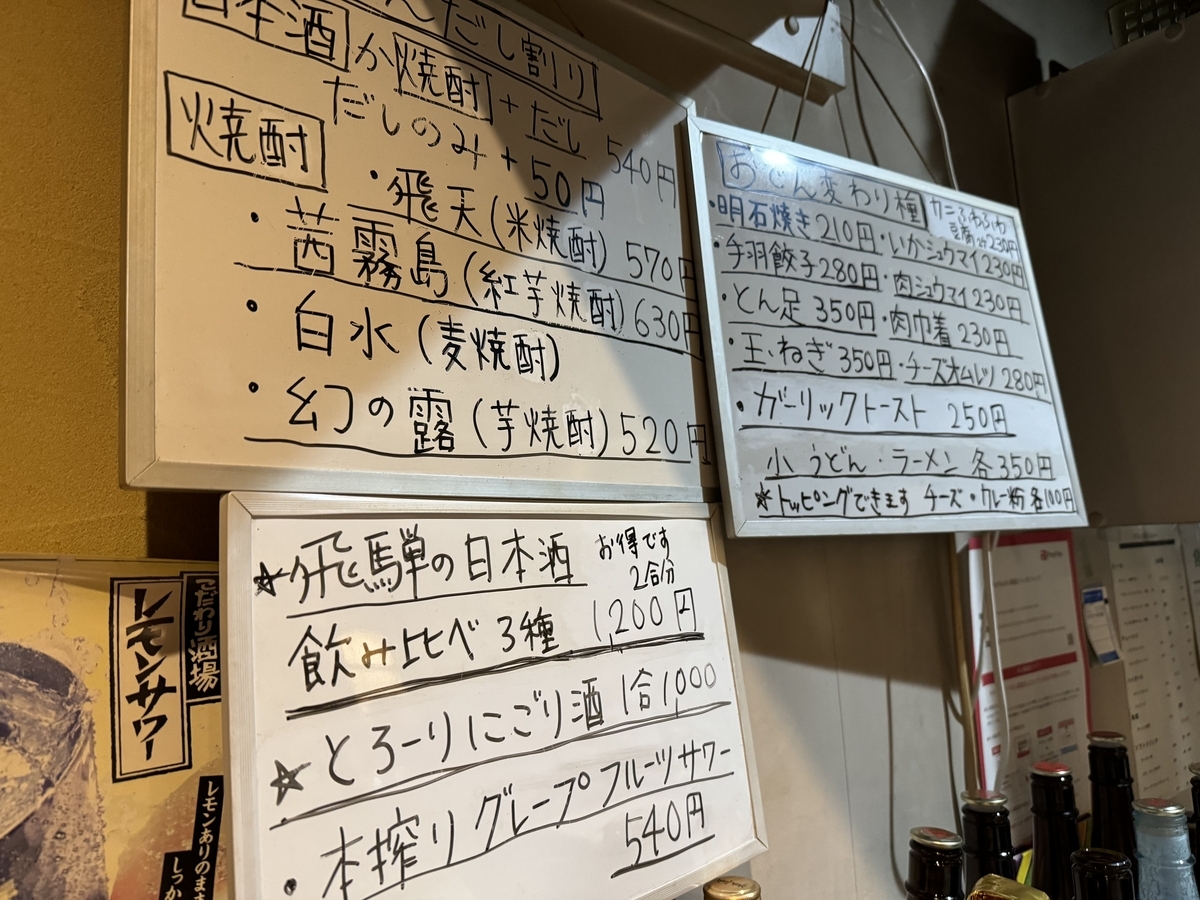 んだし割り
日本酒か焼酎+だし 540円
だしのみ+50円
焼酎
・飛天(米焼酎) 570円
・茜霧島(紅芋焼酎) 630円
・白水(麦焼酎)
・幻の露(芋焼酎) 520円
おでん変わり種
カニふわふわ
豆腐 230円
・明石焼き 210円・いかシュウマイ 230円
・手羽餃子 280円・肉シュウマイ 230円
・とん足 350円・肉巾着 230円
・玉ねぎ 350円・チーズオムレツ 280円
・ガーリックトースト 250円
小 うどん・ラーメン 各350円
☆トッピングできます チーズ・カレー粉 各100円
☆飛騨の日本酒 お得です
2合分
飲み比べ 3種 1,200円
☆とろーりにごり酒 1合1,000
・本搾りグレープフルーツサワー
540円
こだわり酒場
レモンサワー
レモンありのまま
しっか